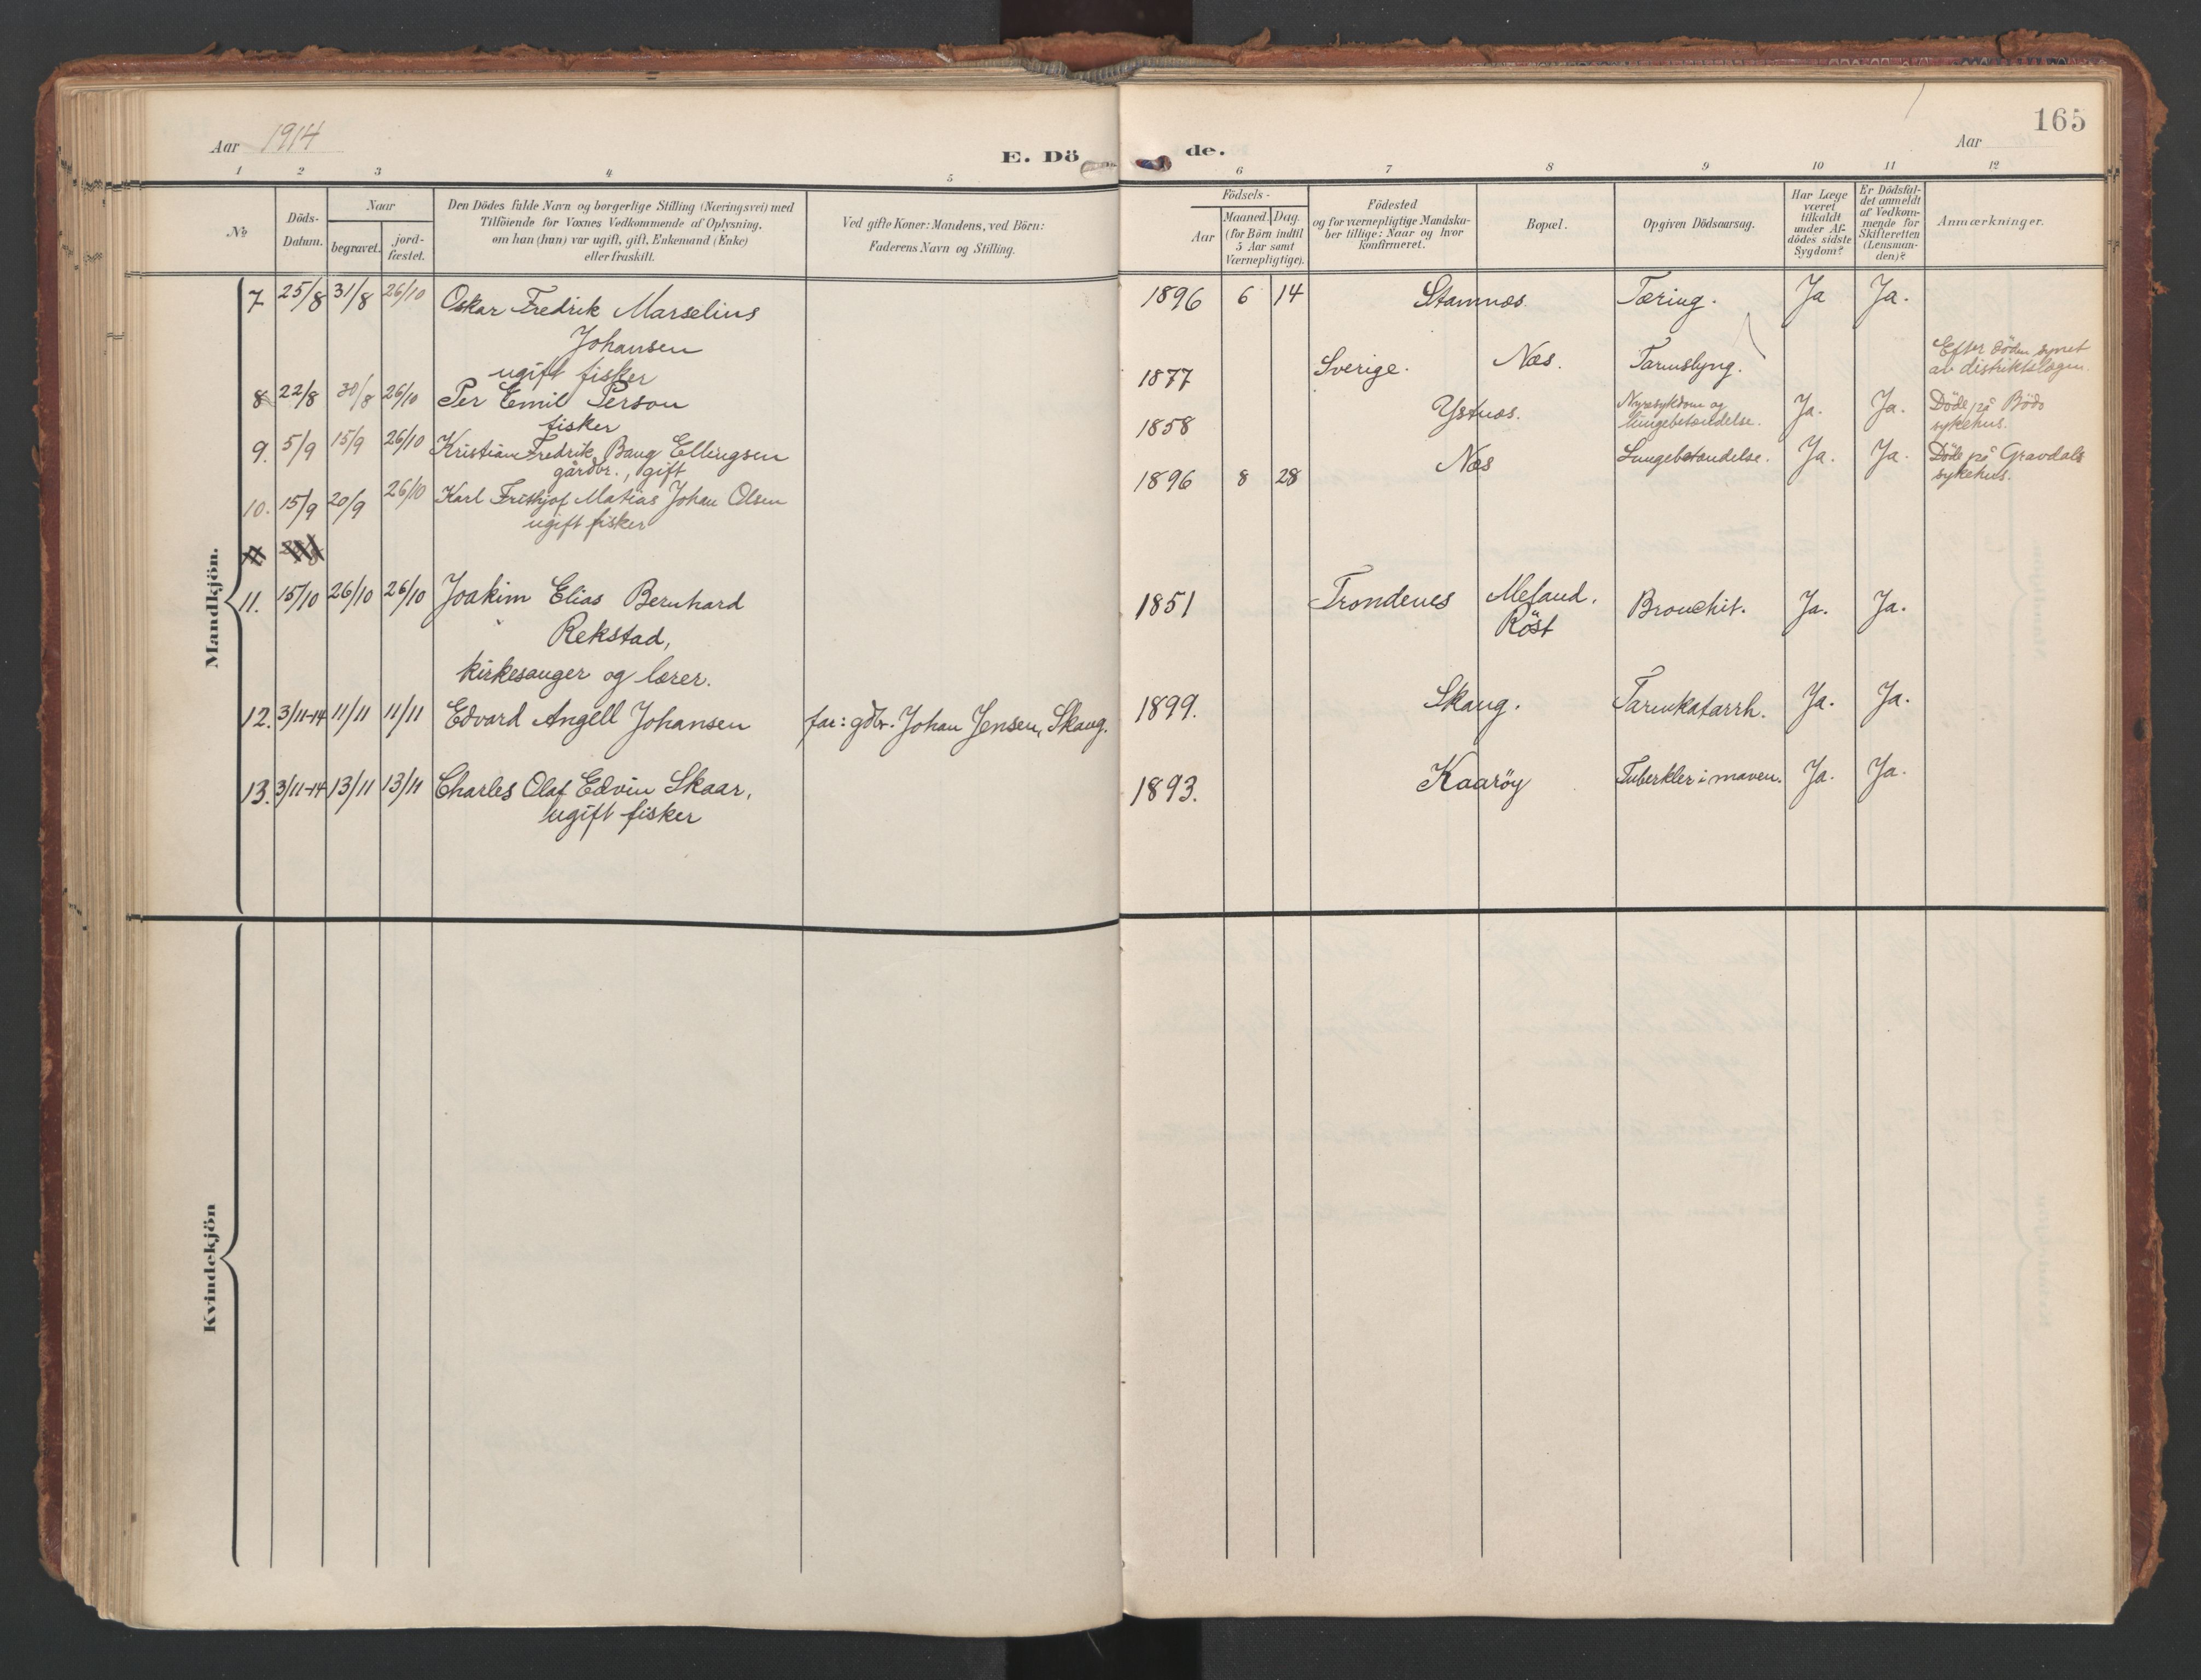 165
Aar 1914
E. Dö
de.
Aar
1 2 3 4 5 6 7 8 9 10 11 12
No
Döds-
Datum.
Naar
begravet.
jord-
fæstet.
Den Dödes fulde Navn og borgerlige Stilling (Næringsvei) med
Tilföiende for Voxnes Vedkommende af Oplysning,
om han (hun) var ugift, gift, Enkemand (Enke)
eller fraskilt.
Ved gifte Koner: Mandens, ved Börn:
Faderens Navn og Stilling.
Födsels-
Aar
Maaned. Dag.
(for Börn indtil
5 Aar samt
Værnepligtige).
Födested
og for værnepligtige Mandska-
ber tillige: Naar og hvor
konfirmeret.
Bopæl.
Opgiven Dödsaarsag.
Har Læge
været
tilkaldt
under Af-
dödes sidste
Sygdom?
Er Dödsfal-
det anmeldt
af Vedkom-
mende for
Skifteretten
(Lensman-
den)?
Anmærkninger.
Mandkjön.
7. 25/8 31/8 26/10 Oskar Fredrik Marselius 1896 6 14 Stamnes. Tæring. Ja Ja.
Johansen
ugift fisker
8 22/8 30/8 26/10 Per Emil Person 1877 Sverige. Næs. Tarmslyng. Efter döden synet
av distriktslægen.
fisker
9. 5/9 15/9 26/10 Kristian Fredrik Bang Ellingsen 1858 Ystnes. Nyresykdom og
lungebetændelse. Ja. Ja. Döde på Bodö
sykehus.
gårdbr., gift
10. 15/9 20/9 26/10 Karl Frithjof Matias Johan Olsen 1896 8 28 Næs Lungebetændelse. Ja. Ja. Döde på Gravdals
sykehus.
ugift fisker
11. 15/10 26/10 26/10 Joakim Elias Bernhard 1851 Trondenes Meland, Bronchit. Ja. Ja.
Röst
Rekstad,
kirkesanger og lærer.
12. 3/11-14 11/11 11/11 Edvard Angell Johansen far: gdbr. Johan Jensen, Skaug. 1899. Skaug. Tarmkatarrh. Ja. Ja.
13. 3/11-14 13/11 13/11 Charles Olaf Edvin Skaar, 1893. Kaaröy Tuberkler i maven. Ja. Ja.
ugift fisker
Kvindekjön